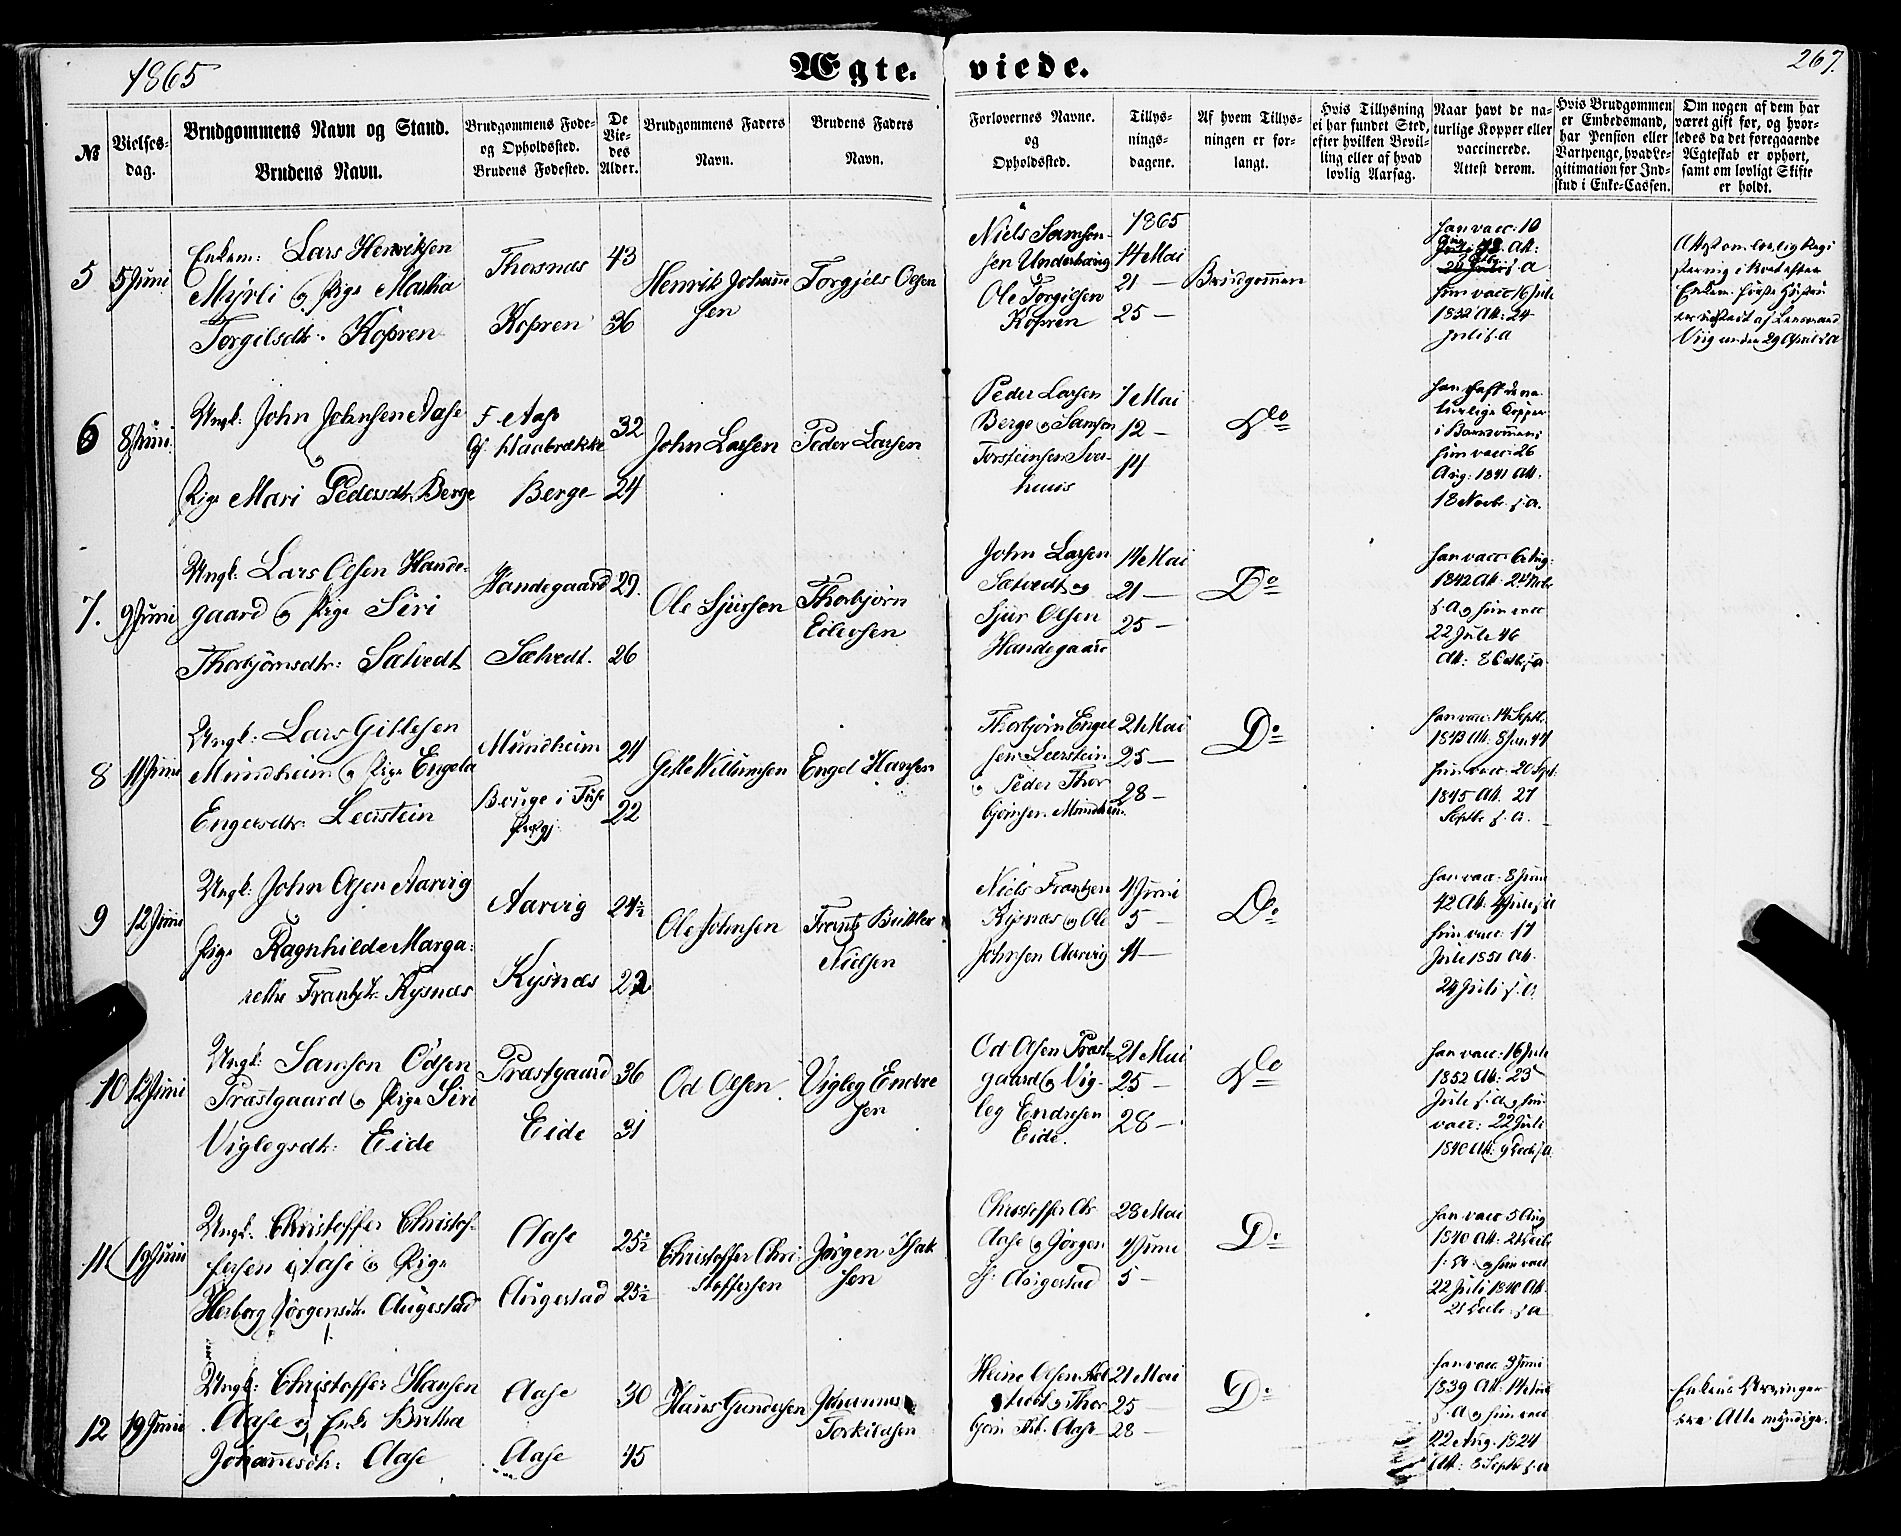 1865
Ægte. viede.
267.
№
Vielses-
dag.
Brudgommens Navn og Stand.
Brudens Navn.
Brudgommens Føde-
og Opholdssted.
Brudens Fødested.
De
Vie-
des
Alder.
Brudgommens Faders
Navn.
Brudens Faders
Navn.
Forlovernes Navne.
og
Opholdssted.
Tillys-
nings-
dagene.
Af hvem Tillys-
ningen er for-
langt.
Hvis Tillysning
ei har fundet Sted,
efter hvilken Bevil-
ling eller af hvad
lovlig Aarsag.
Naar havt de na-
turlige Kopper eller
vaccinerede.
Attest derom.
Hvis Brudgommen
er Embedsmand,
har Pension eller
Vartpenge, hvad Le-
gitimation for Ind-
skud i Enke-Cassen.
Om nogen af dem har
været gift før, og hvor-
ledes da det foregaaende
Ægteskab er ophørt,
samt om lovligt Skifte
er holdt.
5
5 Juni
Enkem: Lars Henriksen
Myrli og Pige Martha
Torgilsdtr. Kopren
Thorsnæs
Kopren
43
36
Henrik Johanne
sen
Torgjels Olsen
Niels Samson-
sen Underhaug
Ole Torgilsen
Kopren
1865
14 Mai
21 —
25 —
Brudgommen
han vacc: 10
hun vacc 16 Juli
1832 Att: 24
Juli s. a
6
8 Juni
Ungk: John Johnsen Aase
Pige Mari Pedersdtr. Berge
F. Aase
Berge
32
24
John Larsen
Peder Larsen
Peder Larsen
Berge og Samson
Torsteinsen
7 Mai
12 —
14
Do
han haft de na-
turlige Kopper
i Barndommen;
hun vacc: 26
Aug: 1841 Att.
18 Novbr. s. a.
7.
9 Juni
Ungk: Lars Olsen Hande-
gaard og Pige Siri
Thorbjørnsdtr: Sætvedt
Handegaard
Sætvedt.
29.
26
Ole Sjursen
Thorbjørn
Eilevsen
John Larsen
Sætvedt og
Sjur Olsen
Handegaard
14 Mai
21 —
25 —
Do
han vacc: 6 Aug:
1842 Att. 24 Nvbr
s. A og hun vacc
22 Juli 46
Att: 8 Octbr s. a.
8
11 Juni
Ungk: Lars Gitlesen
Mundheim og Pige Engela
Engelsdtr. Leerstein
Mundheim
Bruge i Fuse
Præstgj:
24
22
Gitle Villumsen
Engel Hansen
Thorbjørn Engel
sen Leerstein
og Peder Thor
bjørnsen Mundheim.
21 Mai
25 —
28 —
Do
han vacc: 14 Septb.
1843 Att. 8 Jan 44
hun vacc. 20 Sept.
1845 Att. 27
Septbr s. a.
9
12 Juni
Ungk: John Olsen Aarvig
Pige Ragnhilde Marga-
rethe Frantzdtr. Kysnæs
Aarvig
Kysnæs
24½
22
Ole Johnsen
Frantz
Nielsen
Niels Frantzen
Kysnæs og Ole
Johnsen Aarvig
4 Juni
5 —
11 —
Do
han vacc. 8 Juni
42 Att. 4 Juli s. a
hun vacc. 17
Juli 1851 Att.
24 Juli s. a.
10
12 Juni
Ungk: Samson Odsen
Præstgaard og Pige Siri
Viglegsdtr. Eide
Præstgaard
Eide
36
31
Od Olsen
Vigleg Endre
sen
Od Olsen Præst-
gaard og Vig-
leg Endresen
Eide.
21 Mai
25 —
28 —
Do
han vacc: 16 Juli
1852 Att: 23
Juli s. a. og hun
vacc: 22 Juli
1840 Att. 9 Decb s. a.
11
19 Juni
Ungk. Christoffer Christof-
fersen Aase og Pige
Herborg Jørgensdtr. Augestad
Aase
Augestad
25½
25½
Christoffer Chri
stoffersen
Jørgen Isak
sen
Christoffer Chr
Aase og Jørgen
Is: Augestad
28 Mai
4 Juni
5 —
Do
han vacc 5 Aug
1840 Att. 21 Decbr
s. a. og hun vacc
22 Juli 1840 Att.
21 Decbr. s. a
12
19 Juni
Ungk: Christoffer Hansen
Aase og Enke Brita
Johannesdtr: Aase
Aase
Aase
30
45
Hans Gundersen
Johannes
Torkildsen
Heine Olsen
og Thor
bjørn Aase
21 Mai
25 —
28 —
Do
han vacc 9 Juni
1839 Att: 14 Juni
s. A og hun vacc
22 Aug. 1824
Att: 8 Septbr s. a
Enkens Arvinger
ere Alle myndige.